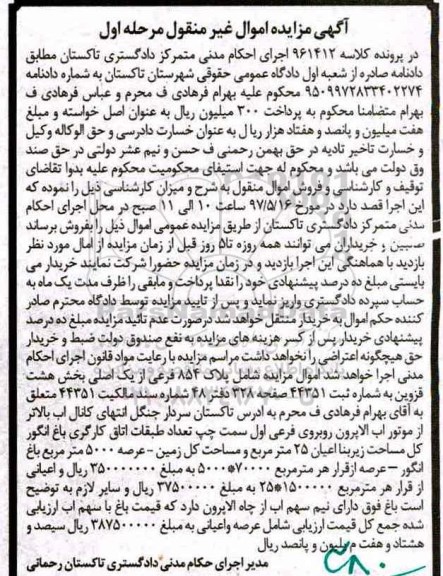 آگهی مزایده اموال غیر منقول مرحله اول
در پرونده کلاسه ۹۶۱۴۱۲ اجرای احکام مدنی متمرکز دادگستری تاکستان مطابق
دادنامه صادره از شعبه اول دادگاه عمومی حقوقی شهرستان تاکستان به شماره دادنامه
۹۵۰۹۹۷۲۸۳۳۴۰۲۲۷۴ محکوم علیه بهرام فرهادی ف محرم و عباس فرهادی ف
بهرام متضامنا محکوم به پرداخت ۳۰۰ میلیون ریال به عنوان اصل خواسته و مبلغ
هفت میلیون و پانصد و هفتاد هزار ریال به عنوان خسارت دادرسی و حق الوکاله وکیل
و خسارت تاخیر تادیه در حق بهمن رحمنی ف حسن و نیم عشر دولتی در حق صند
وق دولت می باشد و محکوم له جهت استیفای محکومیت محکوم علیه بدوا تقاضای
توقیف و کارشناسی و فروش اموال منقول به شرح و میزان کارشناسی ذیل را نموده که
این اجرا قصد دارد در مورخ ۹۷/۵/۱۶ ساعت ۱۰ الی ۱۱ صبح در محل اجرای احکام
مدنی متمرکز دادگستری تاکستان از طریق مزایده عمومی اموال ذیل را بفروش برساند
خریداران می توانند همه روزه تا۵ روز قبل از زمان مزایده از امال مورد نظر
بازدید با هماهنگی این اجرا بازدید و در زمان مزایده حضورا شرکت نمایند خریدار می
بایستی مبلغ ده درصد پیشنهادی خود را نقدا پرداخت و مابقی را ظرف مدت یک ماه به
حساب سپرده دادگستری واریز نماید و پس از تایید مزایده توسط دادگاه محترم صادر
کننده حکم اموال به خریدار منتقل خواهد شد درصورت عدم تائید مزایده مبلغ ده درصد
پیشنهادی خریدار پس از کسر هزینه های مزایده به نفع صندوق دولت ضبط و خریدار
حق هیچگونه اعتراضی را نخواهد داشت مراسم مزایده با رعایت مواد قانون اجرای احکام
مدنی اجرا خواهد شد اموال مزایده شامل پلاک ۸۵۴ فرعی از یک اصلی بخش هشت
قزوین به شماره ثبت ۴۴۳۵۱ صفحه ۳۲۸ دفتر ۲۴۸ شماره سند مالکیت ۴۴۳۵۱ متعلق
به آقای بهرام فرهادی ف محرم به آدرس تاکستان سردار جنگل انتهای کانال اب بالاتر
از موتور اب الاپرون روبروی فرعی اول سمت چپ تعداد طبقات اتاق کارگری باغ انگور
کل مساحت زیربنا اعیان ۲۵ متر مربع و مساحت کل زمین - عرصه ۵۰۰۰ متر مربع باغ
انگور – عرصه ازقرار هر مترمربع ۷۰۰۰۰*۵۰۰۰ به مبلغ ۳۵۰۰۰۰۰۰۰ ریال و اعیانی
از قرار هر مترمربع ۱۵۰۰۰۰۰*۲۵ به مبلغ ۳۷۵۰۰۰۰۰ ریال و سایر لازم به توضیح
است باغ فوق دارای نیم سهم اب از چاه الاپرون دارد که قیمت باغ با سهم اب ارزیابی
شده جمع کل قیمت ارزیابی شامل عرصه واعیانی به مبلغ ۳۸۷۵۰۰۰۰۰ ریال سیصد و
هشتاد و هفت میلیون و پانصد ریال
مدیر اجرای حکام مدنی دادگستری تاکستان رحمانی